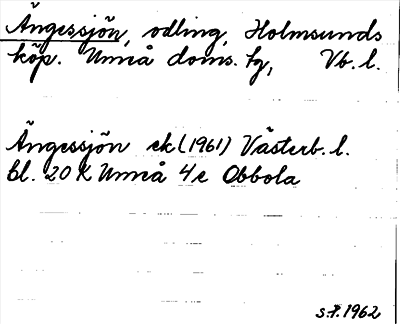 Ängessjön, odling, Holmsunds
köp. Umeå doms. tg, Vb. l.
Ängessjön ek (1961) Västerb. l.
bl. 20 K Umeå 4 c Obbola
s. f. 1962